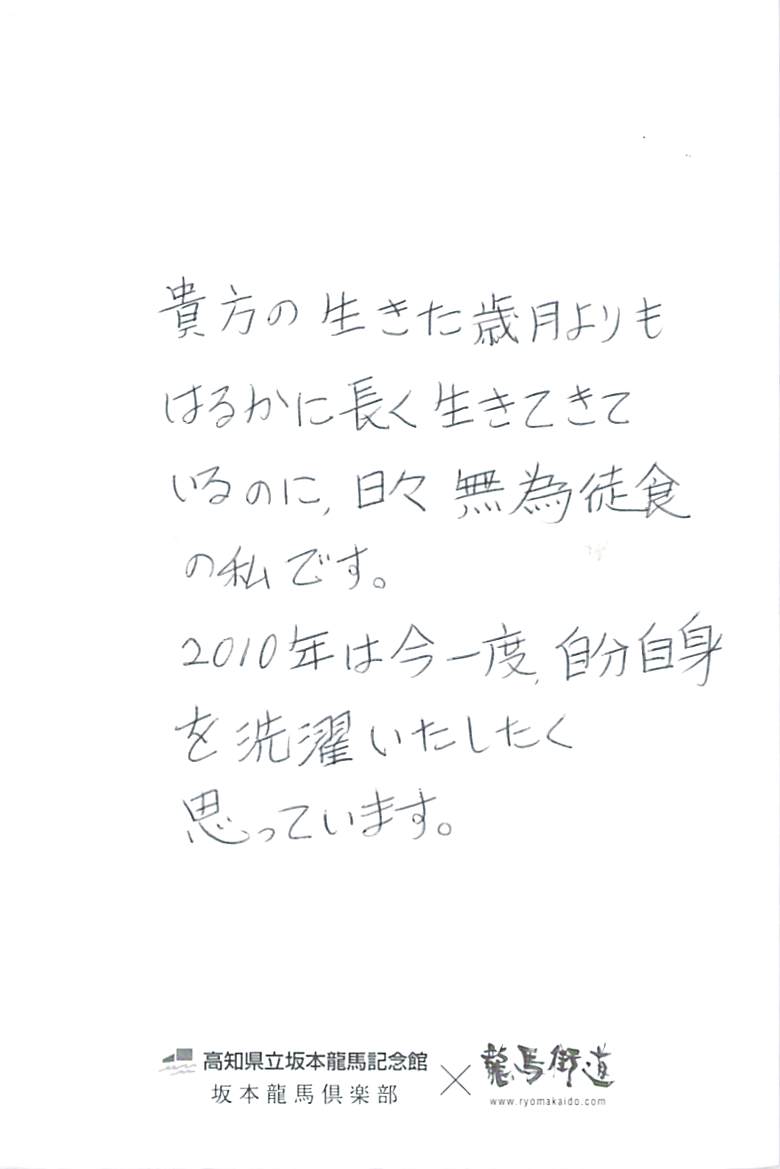 貴方の生きた歳月よりも
はるかに長く生きてきて
いるのに、日々無為徒食
の私です。
2010年は今一度、自分自身
を洗濯いたしたく
思っています。
高知県立坂本龍馬記念館
坂本龍馬倶楽部
×
龍馬街道
www.ryomakaido.com